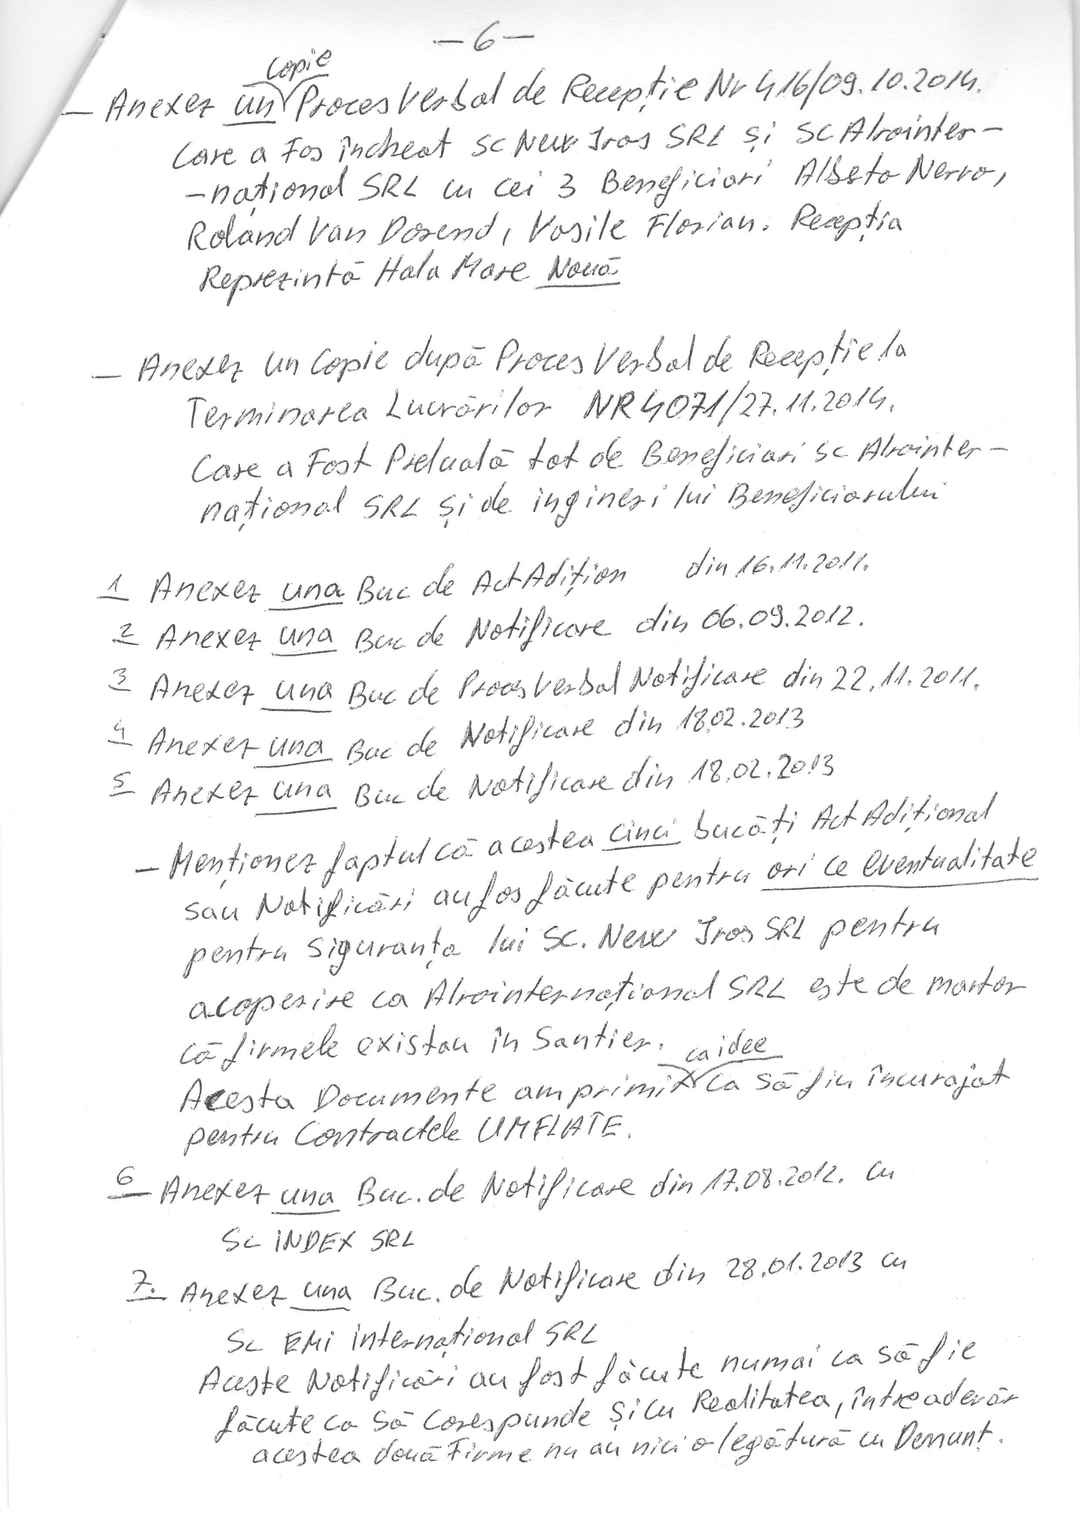 —6—
Copie
— Anexez un Proces Verbal de Recepție Nr 416/09.10.2014.
Care a Fos încheat SC New Iros SRL și SC Alrointer-
-național SRL cu cei 3 Beneficiari Albeto Nervo,
Roland Van Dorend, Vasile Florian. Recepția
Reprezintă Hala Mare Nouă.
— Anexez un Copie după Proces Verbal de Recepție la
Terminarea Lucrărilor NR 4071/27.11.2014.
Care a Fost Preluată tot de Beneficiari SC Alrointer-
național SRL și de ingineri lui Beneficiarului
1 Anexez una Buc de Act Adițion din 16.11.2011.
2 Anexez una Buc de Notificare din 06.09.2012.
3 Anexez una Buc de Proces Verbal Notificare din 22.11.2011.
4 Anexez una Buc de Notificare din 18.02.2013
5 Anexez una Buc de Notificare din 18.02.2013
- Menționez faptul că acestea cinci bucăți Act Adițional
sau Notificări au fos făcute pentru ori ce eventualitate
pentru Siguranța lui SC. New Iros SRL pentru
acoperire ca Alrointernațional SRL este de martor
că firmele existau în Santier.
ca idee
Acesta Documente am primit ca să fiu încurajat
pentru Contractele UMFLATE.
6 Anexez una Buc. de Notificare din 17.08.2012. cu
SC INDEX SRL
7. Anexez una Buc. de Notificare din 28.01.2013 cu
SC EMi internațional SRL
Aceste Notificări au fost făcute numai ca să fie
făcute ca să Corespunde și cu Realitatea, întreadevăr
acestea două Firme nu au nici o legătură cu Denunț.